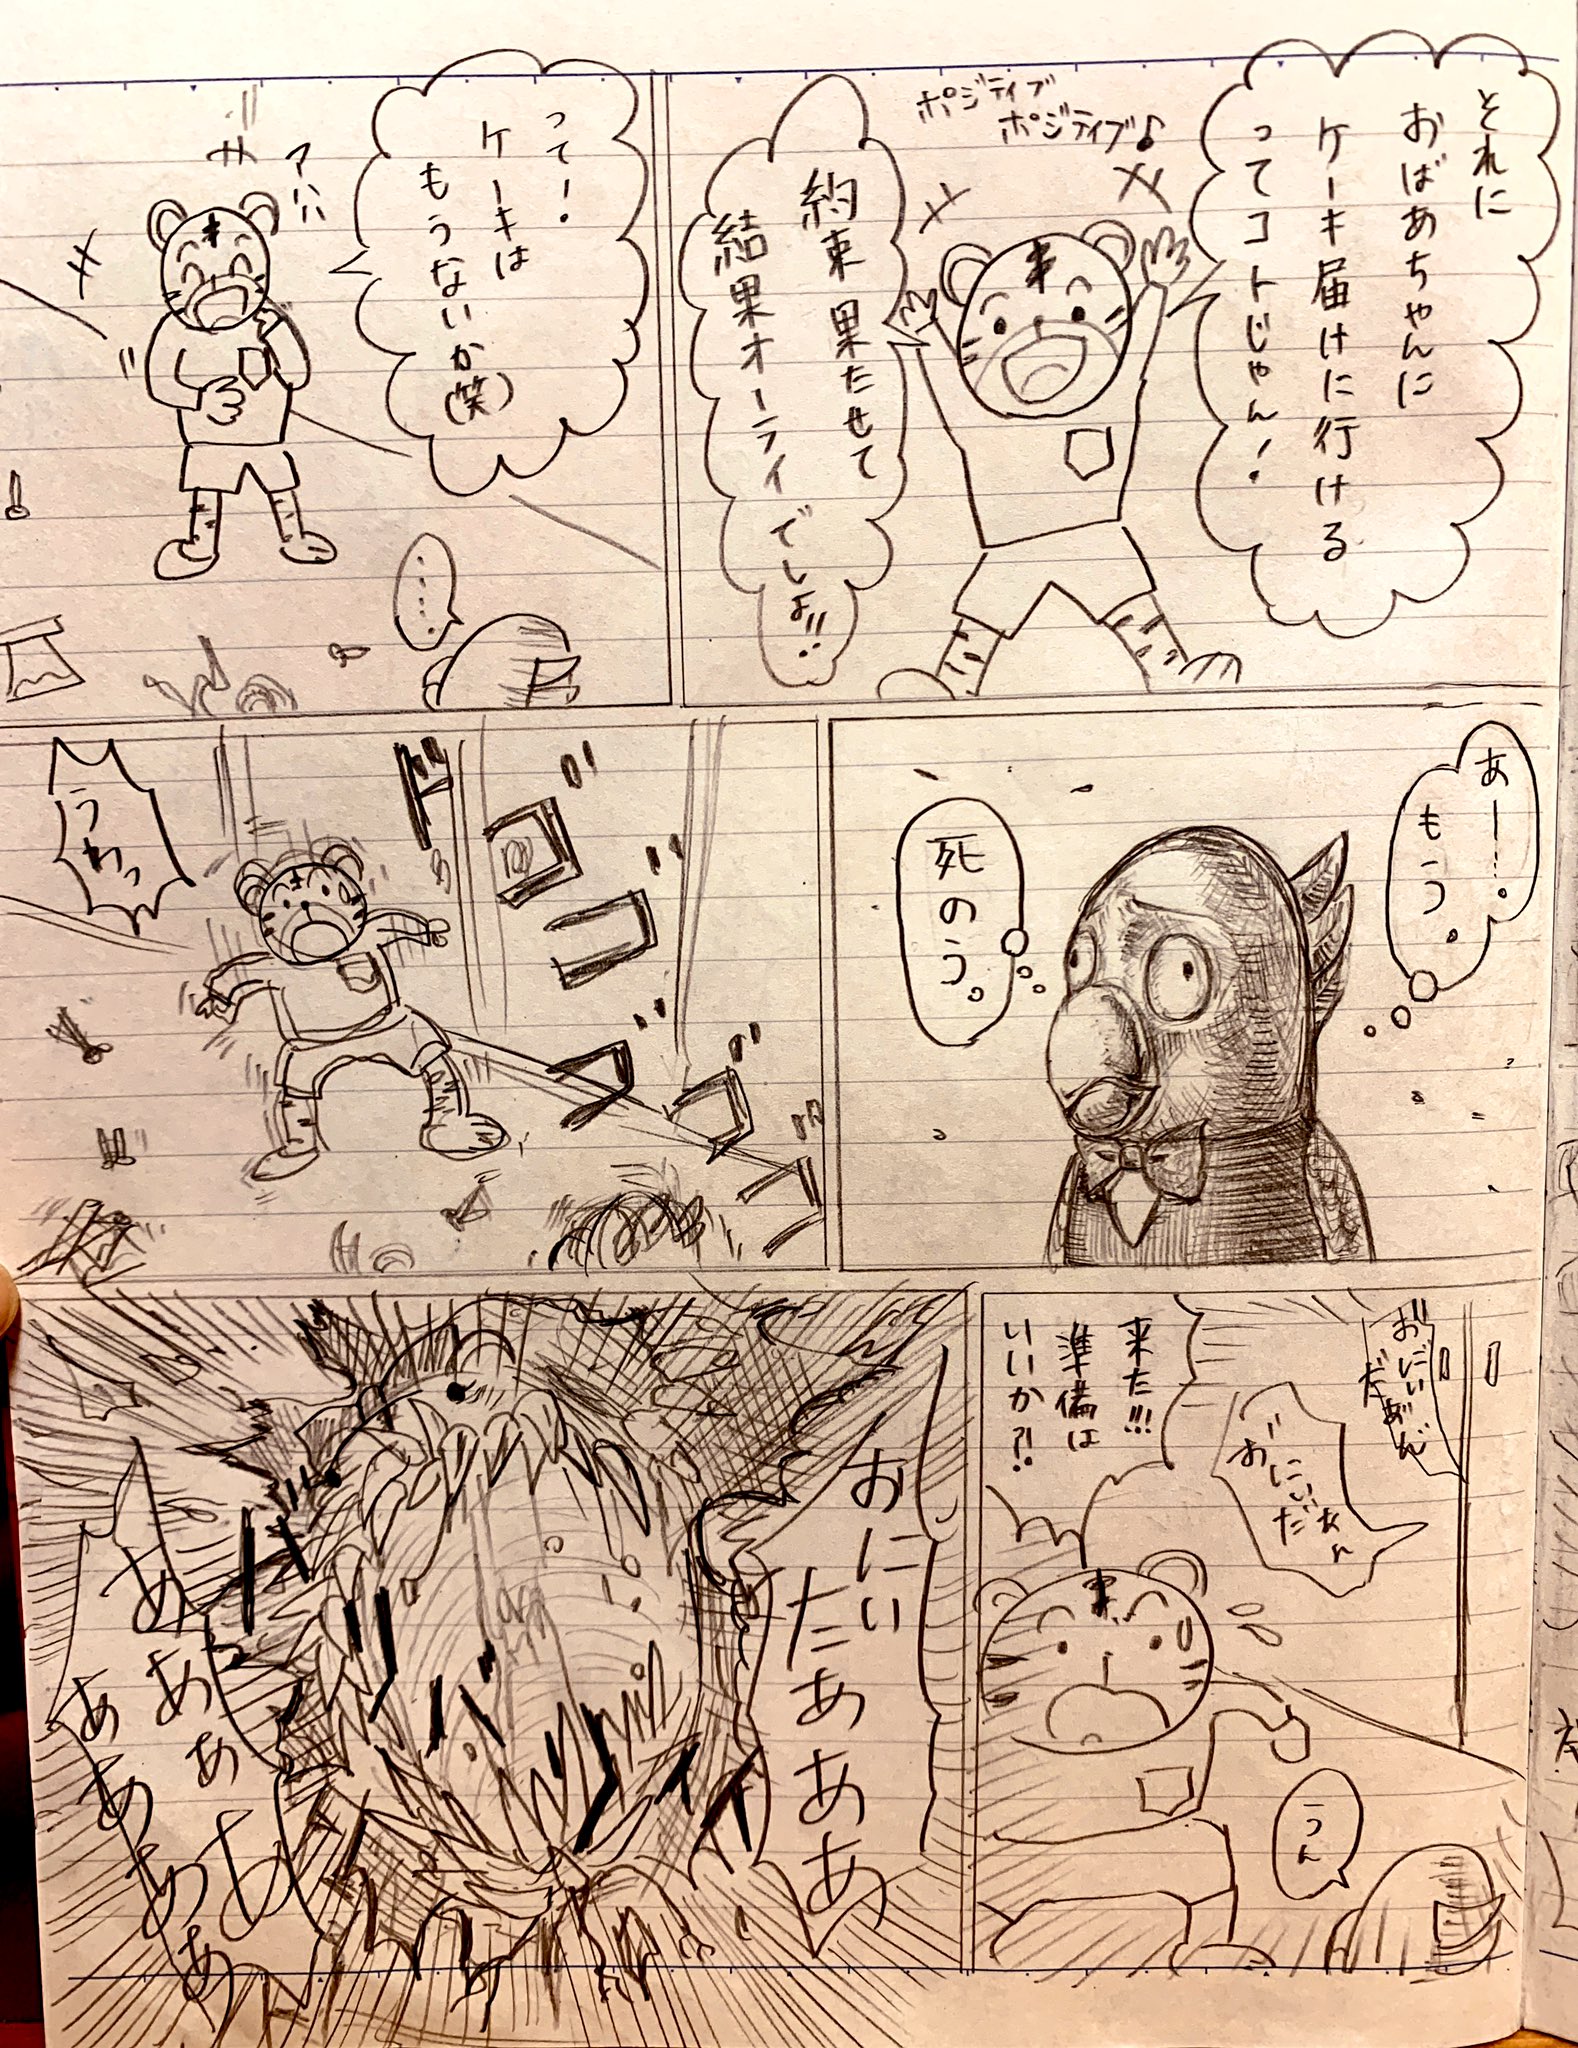 それに
おばあちゃんに
ケーキ届けに行ける
ってコトじゃん!
ポジティブ
ポジティブ♪
約束果たせて
結果オーライでしょ!!
って!
ケーキは
もうないか(笑)
アハハ
‥‥‥
あー…。
もう。
死のう。
うわっ
ドゴゴゴゴ
来た!!!
準備は
いいか?!
うん
おにぃ
たあああ